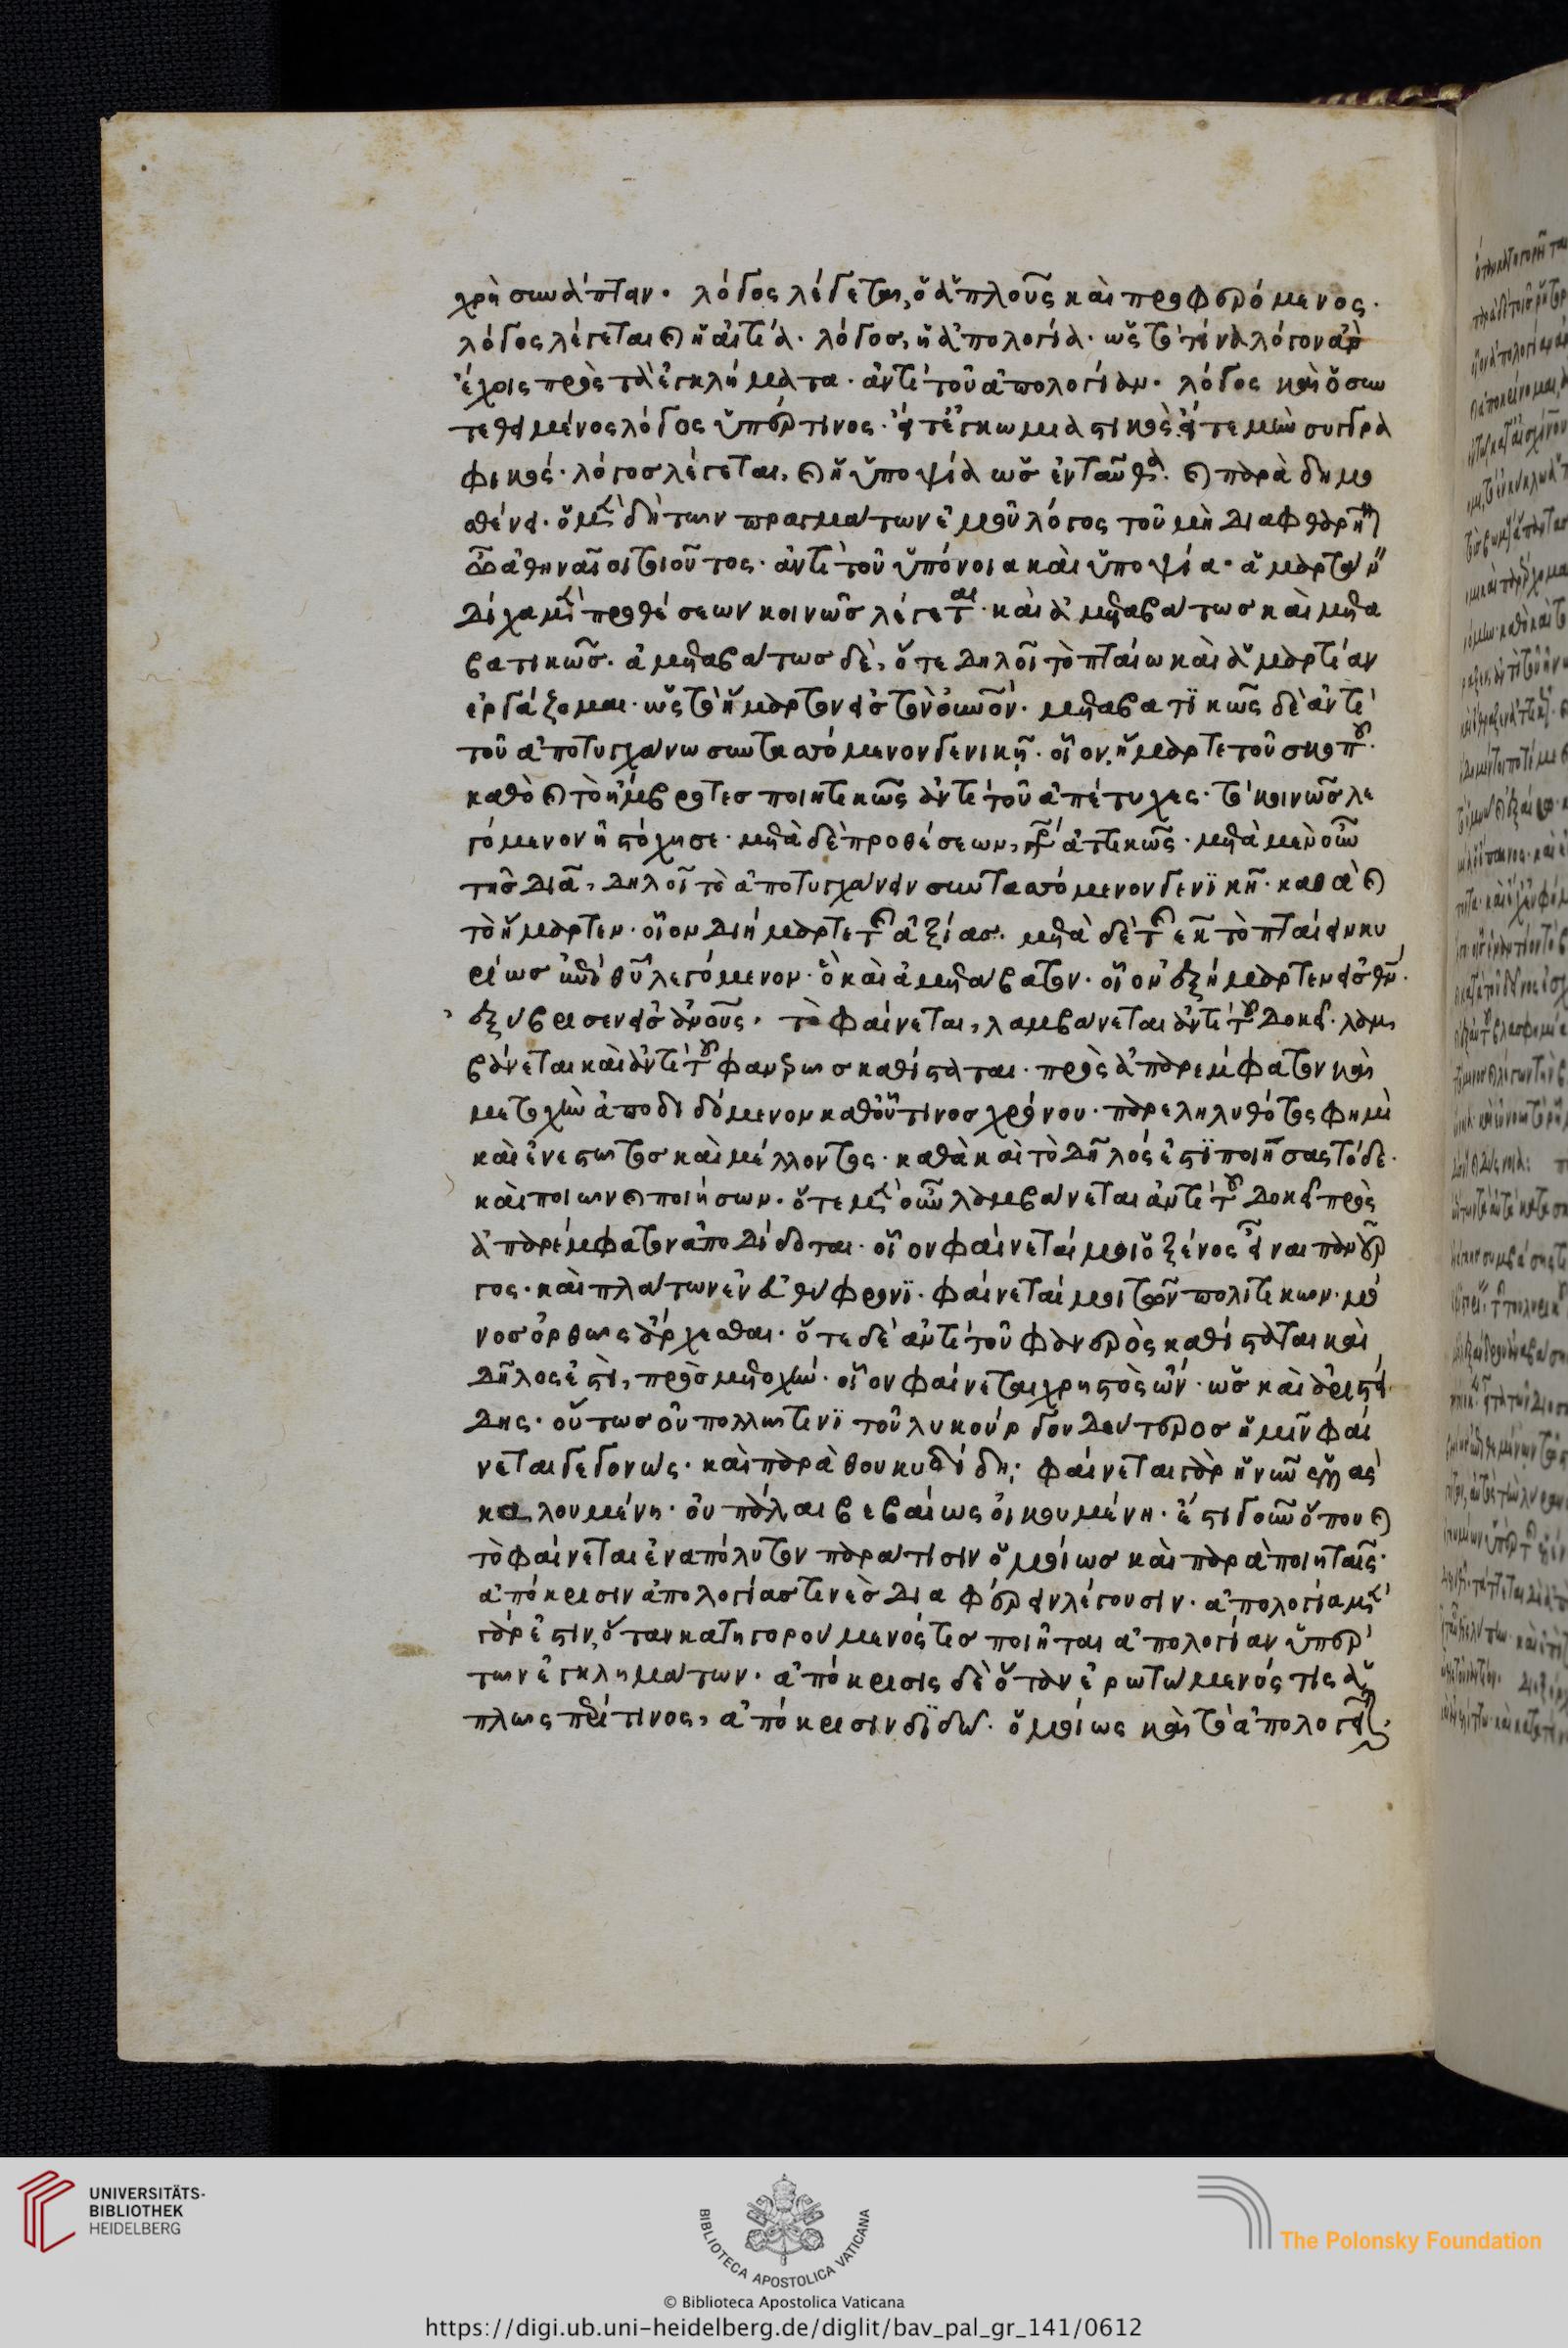 χρὴ συνάπτειν. λόγος λέγεται, ὁ ἁπλοῦς καὶ προφερόμενος.
λόγος λέγεται καὶ ἡ αἰτία. λόγος, ἡ ἀπολογία. ὡς τὸ τίνα λόγον ἂν
ἔχοις πρὸς τὰ ἐγκλήματα. ἀντὶ τοῦ ἀπολογίαν. λόγος καὶ ὁ συν
τεθειμένος λόγος ὑπέρ τινος. εἴτε ἐγκωμιαστικός. εἴτε μὴν συγγρα
φικός. λόγος λέγεται, καὶ ἡ ὑποψία ὡς ἐνταῦθα. καὶ παρὰ δημο
σθένει. ὁ μὲν δὴ τῶν πραγμάτων ἐμοῦ λόγος τοῦ μὴ διαφθαρῆναι
ἀθηναῖοι τοιοῦτος. ἀντὶ τοῦ ὑπόνοια καὶ ὑποψία. ἁμαρτάνω
δίχα μὲν προθέσεων κοινῶς λέγεται. καὶ ἀμεταβάτως καὶ μετα
βατικῶς. ἀμεταβάτως δὲ, ὅτε δηλοῖ τὸ πταίω καὶ ἁμαρτίαν
ἐργάζομαι. ὡς τὸ ἥμαρτον εἰς τὸν οὐνὸν. μεταβατικῶς δὲ ἀντὶ
τοῦ ἀποτυγχάνω συντασσόμενον γενικῇ. οἷον, ἥμαρτε τοῦ σκοποῦ.
καθὸ καὶ τὸ ἤμβροτες ποιητικῶς ἀντὶ τοῦ ἀπέτυχες. τὸ κοινῶς λε
γόμενον ἠστόχησε. μετὰ δὲ προθέσεων, ἀττικῶς. μετὰ μὲν οὖν
τῆς διὰ, δηλοῖ τὸ ἀποτυγχάνειν συντασσόμενον γενικῇ. καθὰ καὶ
τὸ ἥμαρτεν. οἷον διήμαρτε τῆς ἀξίας. μετὰ δὲ τῆς ἐκ τὸ πταίειν κυ
ρίως ἐπὶ θυ λεγόμενον. ὃ καὶ ἀμετάβατον. οἷον ἐξήμαρτεν εἰς θν.
ἐξύβρισεν εἰς ἀνους. τὸ φαίνεται, λαμβάνεται ἀντὶ τοῦ δοκεῖ. λαμ
βάνεται καὶ ἀντὶ τοῦ φανερῶς καθίσταται. πρὸς ἀπαρέμφατον καὶ
μετοχὴν ἀποδιδόμενον καθ' οὗτινος χρόνου. παρεληλυθότος φημὶ
καὶ ἐνεστῶτος καὶ μέλλοντος. καθὰ καὶ τὸ δῆλός ἐστι ποιήσας τόδε.
καὶ ποιῶν καὶ ποιήσων. ὅτε μὲν οὖν λαμβάνεται ἀντὶ τοῦ δοκεῖ πρὸς
ἀπαρέμφατον ἀποδίδοται. οἷον φαίνεταί μοι ὁ ξένος εἶναι πανοῦρ
γος. καὶ πλάτων ἐν εὐθύφρονι. φαίνεταί μοι τῶν πολιτικῶν. μό
νος ὀρθῶς ἄρχεσθαι. ὅτε δὲ ἀντὶ τοῦ φανερὸς καθίσταται καὶ
δῆλος ἐστὶ, πρὸς μετοχήν. οἷον φαίνεται χρηστὸς ὤν. ὡς καὶ ἀριστεί
δης. οὕτως οὐ πολλῷ τινι τοῦ λυκούργου δεύτερος ἡμῖν φαί
νεται γεγονώς. καὶ παρὰ θουκυδίδη; φαίνεται γὰρ ἡ νῦν ἑλλὰς
καλουμένη. οὐ πάλαι βεβαίως οἰκουμένη. ἔστι γοῦν ὅπου καὶ
τὸ φαίνεται ἐναπόλυτον παρά τισιν ὁμοίως καὶ παρὰ ποιηταῖς.
ἀπόκρισιν ἀπολογίας τινὲς διαφέρειν λέγουσιν. ἀπολογία μὲν
γάρ ἐστιν, ὅταν κατηγορούμενός τις ποιῆται ἀπολογίαν ὑπὲρ
τῶν ἐγκλημάτων. ἀπόκρισις δὲ ὅταν ἐρωτώμενός τις ἁ
πλῶς περί τινος, ἀπόκρισιν διδῶ. ὁμοίως καὶ τὸ ἀπολογεῖσθαι.
UNIVERSITÄTS-
BIBLIOTHEK
HEIDELBERG
BIBLIOTECA APOSTOLICA VATICANA
The Polonsky Foundation
© Biblioteca Apostolica Vaticana
https://digi.ub.uni-heidelberg.de/diglit/bav_pal_gr_141/0612